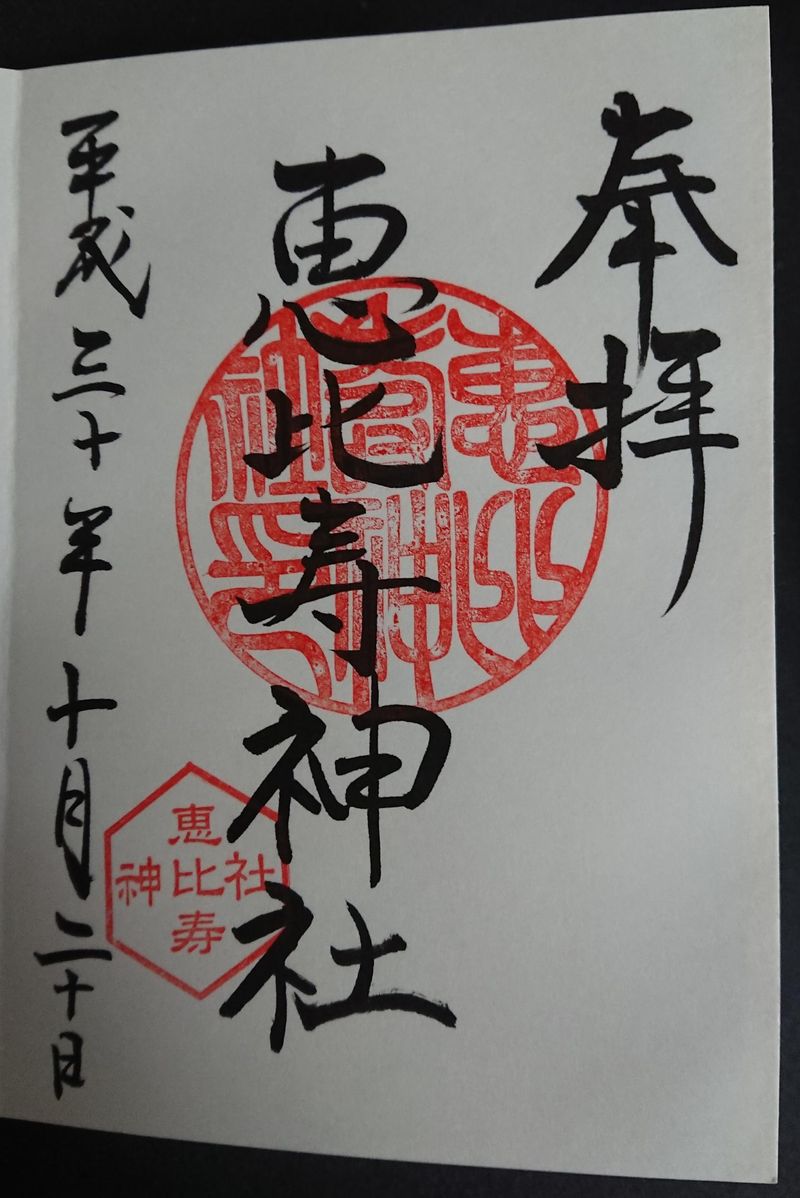 奉拝
恵比寿神社
恵比寿神社印
恵比寿
神社
平成三十年十月二十日